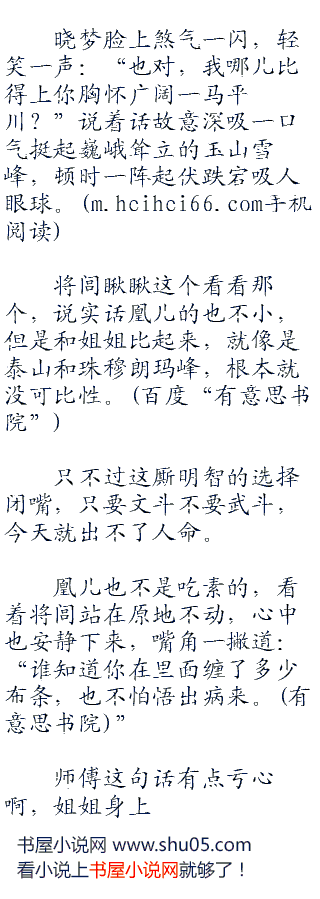 晓梦脸上煞气一闪，轻
笑一声：“也对，我哪儿比
得上你胸怀广阔一马平
川？”说着话故意深吸一口
气挺起巍峨耸立的玉山雪
峰，顿时一阵起伏跌宕吸人
眼球。(m.hcihci66.com手机
阅读)
将闾瞅瞅这个看看那
个，说实话凰儿的也不小，
但是和姐姐比起来，就像是
泰山和珠穆朗玛峰，根本就
没可比性。(百度“有意思书
院”)
只不过这厮明智的选择
闭嘴，只要文斗不要武斗，
今天就出不了人命。
凰儿也不是吃素的，看
着将闾站在原地不动，心中
也安静下来，嘴角一撇道：
“谁知道你在里面缠了多少
布条，也不怕悟出病来。(有
意思书院)”
师傅这句话有点亏心
啊，姐姐身上
书屋小说网 www.shu05.com
看小说上书屋小说网就够了！